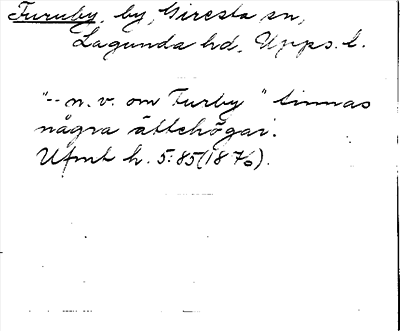 Furuby, by, Giresta sn,
Lagunda hd, Upps. l.
"-- n. v. om Furby" finnas
några ättehögar.
Ufmt h. 5:85 (1876).